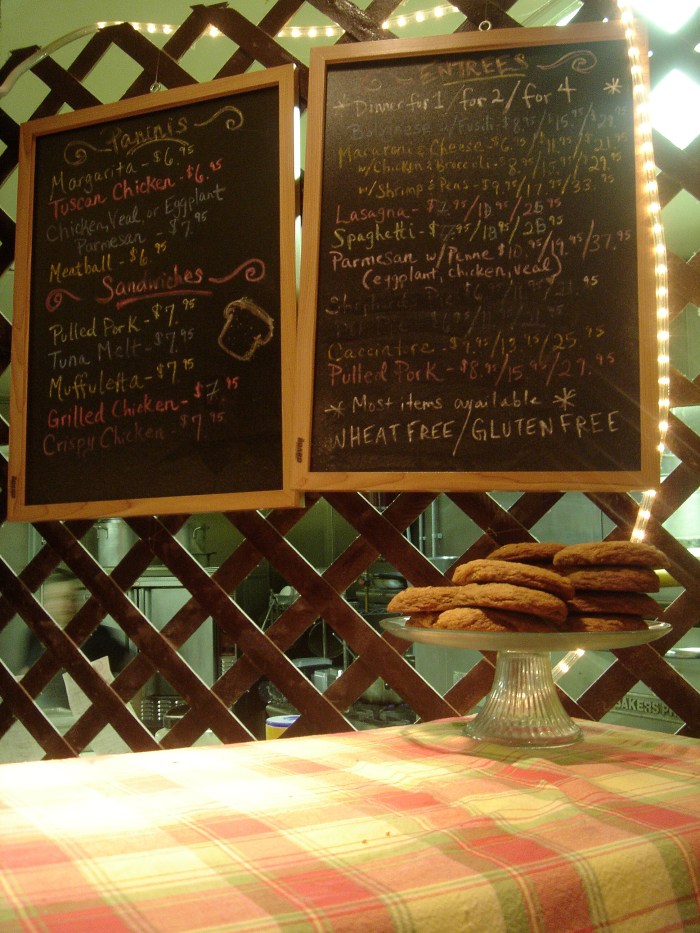 Paninis
Margarita - $6.95
Tuscan Chicken - $6.95
Chicken, Veal, or Eggplant
Parmesan - $7.95
Meatball - $6.95
Sandwiches
Pulled Pork - $7.95
Tuna Melt - $7.95
Muffuletta - $7.95
Grilled Chicken - $7.95
Crispy Chicken - $7.95
ENTREES
* Dinner for 1 / for 2 / for 4 *
Bolognese w/ Fusili - $8.95/$15.95/$29.95
Macaroni & Cheese - $6.95/$11.95/$21.95
w/ Chicken & Broccoli - 8.95/15.95/29.95
w/ Shrimp & Peas - $9.95/17.95/33.95
Lasagna - $7.95/13.95/25.95
Spaghetti - $7.95/13.95/25.95
Parmesan w/ Penne $10.95/19.95/37.95
(eggplant, chicken, veal)
Shepherd's Pie - $6.95/11.95/21.95
Cacciatore - $7.95/13.95/25.95
Pulled Pork - $8.95/15.95/29.95
* Most items available *
WHEAT FREE/GLUTEN FREE
BAKERS PR